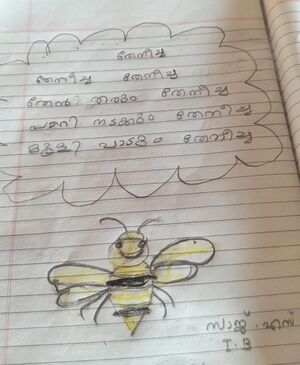 തേനീച്ച
തേനീച്ച തേനീച്ച
തേൻ തരും തേനീച്ച
പാറി നടക്കും തേനീച്ച
മൂളി പാടും തേനീച്ച
1.B